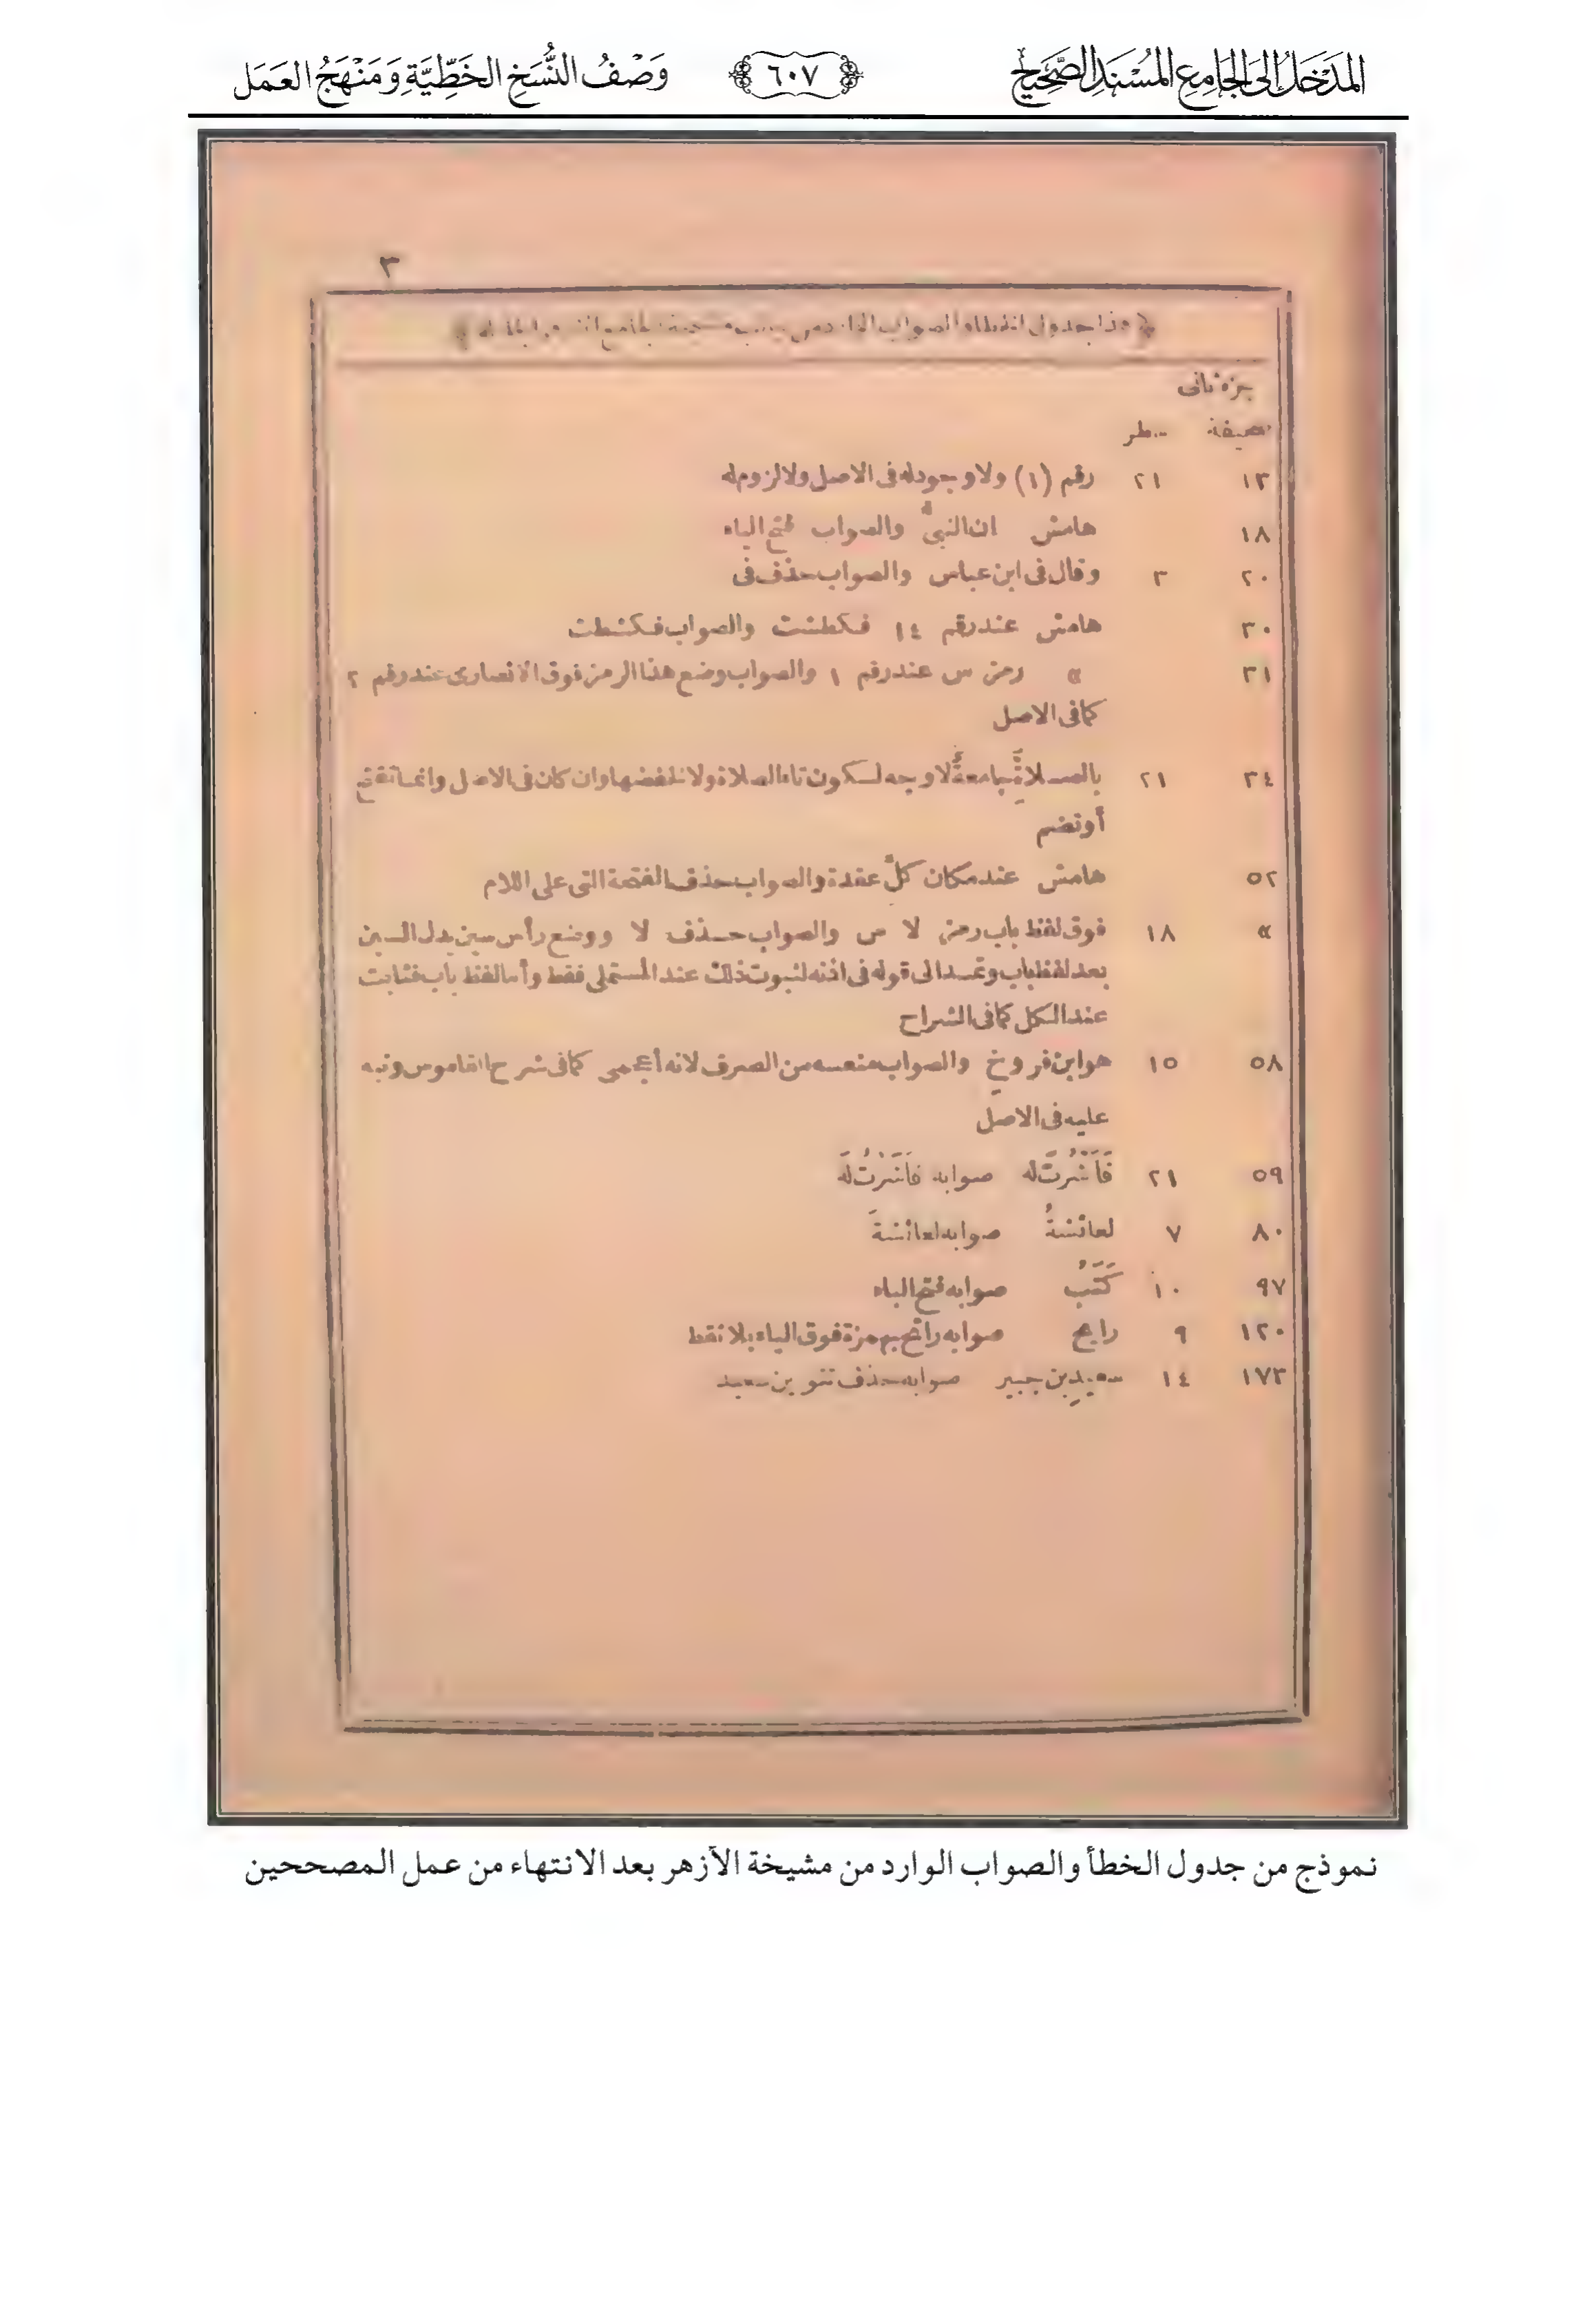 المَدْخَلُ إلى الجَامِعِ المُسْنَدِ الصَّحِيحِ ٦٠٧ وَصْفُ النُّسَخِ الخَطِّيَّةِ وَمَنْهَجُ العَمَل
٣
هذا جدول الخطا والصواب الوارد من
جزء ثانى
صحيفة سطر
١٣ ٢١ رقم (١) ولا وجود له فى الاصل ولا لزوم له
١٨ هامش ان النبىُّ والصواب فتح الياء
٢٠ ٣ وقال فى ابن عباس والصواب حذف فى
٣٠ هامش عند رقم ١٤ فكطشت والصواب فكشطت
٣١ » رمز س عند رقم ١ والصواب وضع هذا الرمز فوق الانصارى عند رقم ٢
كما فى الاصل
٣٤ ٢١ بالصلاة جامعة لا وجه لسكون تاء الصلاة ولا لخفضها وان كان فى الاصل وانما تفتح
أو تضم
٥٢ هامش عند مكان كلَّ عقدة والصواب حذف الفتحة التى على اللام
» ١٨ فوق لفظ باب رمز لا ص والصواب حذف لا ووضع رأس سين بدل السين
بعد لفظ باب وتمد الى قوله فى اذنه لثبوت ذلك عند المستملى فقط وأما لفظ باب فثابت
عند الكل كما فى الشراح
٥٨ ١٥ هو ابن فروخٍ والصواب منعه من الصرف لانه أعجمى كما فى شرح القاموس ونبه
عليه فى الاصل
٥٩ ٢١ فَأَشَرْتُ له صوابه فَأَشَرْتُ لَهُ
٨٠ ٧ لعائشةُ صوابه لعائشةَ
٩٧ ١٠ كَتَبُ صوابه فتح الباء
١٢٠ ٩ رايح صوابه رائح بهمزة فوق الياء بلا نقط
١٧٣ ١٤ سعيدٍ بن جبير صوابه حذف تنوين سعيد
نموذج من جدول الخطأ والصواب الوارد من مشيخة الأزهر بعد الانتهاء من عمل المصححين